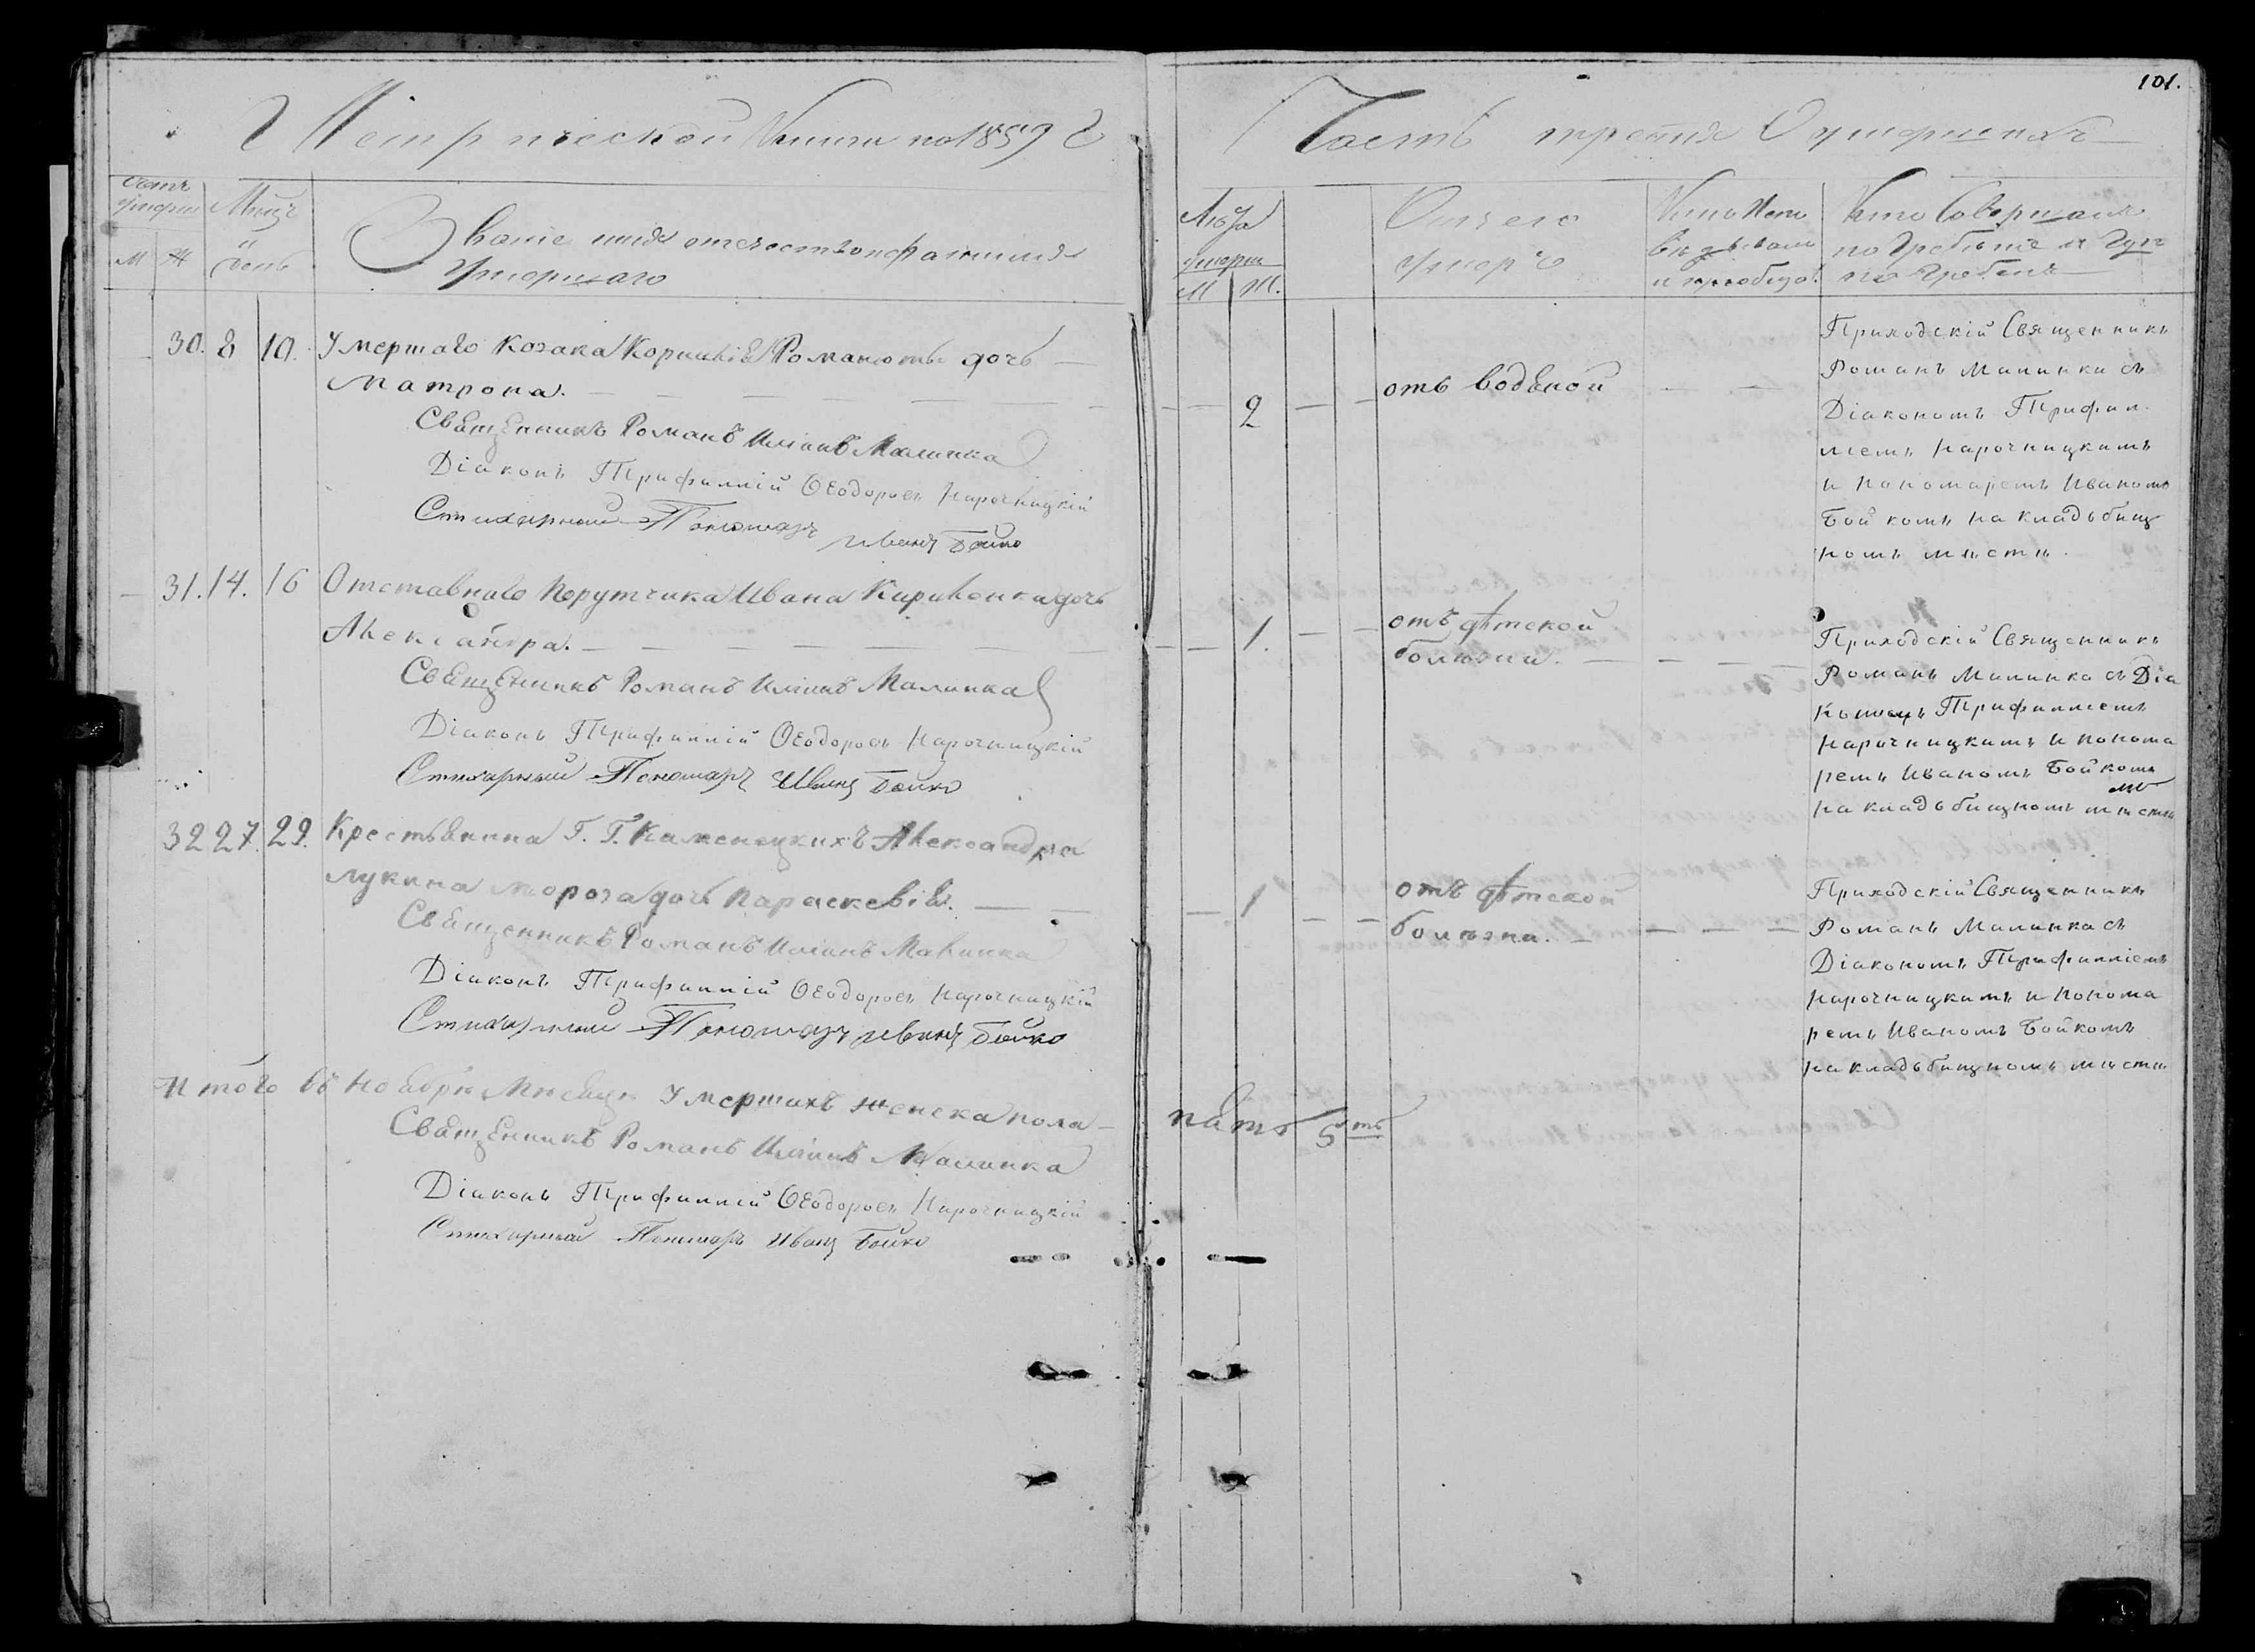 Метрической Книги на 1859 г
Счетъ умерш
М Ж
Мѣсц
День
Званіе имя отечество и фамилія
умершаго
30. 8 10. Умершаго козака Корнилія Романюты дочь
Матрона.
Священникъ Романъ Иліинъ Малинка
Діаконъ Трифиллій Ѳеодоровъ Нарочницкій
Стихарный Пономарь Иванъ Бойко
31. 14. 16 Отставнаго Порутчика Ивана Кириленка дочь
Александра.
Священникъ Романъ Иліинъ Малинка
Діаконъ Трифиллій Ѳеодоровъ Нарочницкій
Стихарный Пономарь Иванъ Бойко
32 27. 29. Крестьянина Г. Г. Каменецкихъ Александра
Лукина Мороза дочь Параскевія.
Священникъ Романъ Иліинъ Малинка
Діаконъ Трифиллій Ѳеодоровъ Нарочницкій
Стихарный Пономарь Иванъ Бойко
Итого въ Ноябрѣ Мѣсяцѣ Умершихъ женска пола
Священникъ Романъ Иліинъ Малинка
Діаконъ Трифиллій Ѳеодоровъ Нарочницкій
Стихарный Пономарь Иванъ Бойко
101.
Часть третія О умершихъ
Лѣта
умерш
М Ж.
Отъ чего
умеръ
Кто Испо
вѣдывалъ
и пріобщ.
Кто Совершалъ
погребеніе и гдѣ
погребенъ
2
отъ водяной
Приходскій Священникъ
Романъ Малинка съ
Діакономъ Трифил
ліемъ Нарочницкимъ
и Пономаремъ Иваномъ
Бойкомъ на кладьбищ
номъ мѣстѣ.
1.
отъ дѣтской
болѣзни.
Приходскій Священникъ
Романъ Малинка съ Діа
кономъ Трифилліемъ
Нарочницкимъ и Понома
ремъ Иваномъ Бойкомъ
на кладьбищномъ мѣстѣ
1
отъ дѣтской
болѣзни.
Приходскій Священникъ
Романъ Малинка съ
Діакономъ Трифилліемъ
Нарочницкимъ и Понома
ремъ Иваномъ Бойкомъ
на кладьбищномъ мѣстѣ
пять 5ть